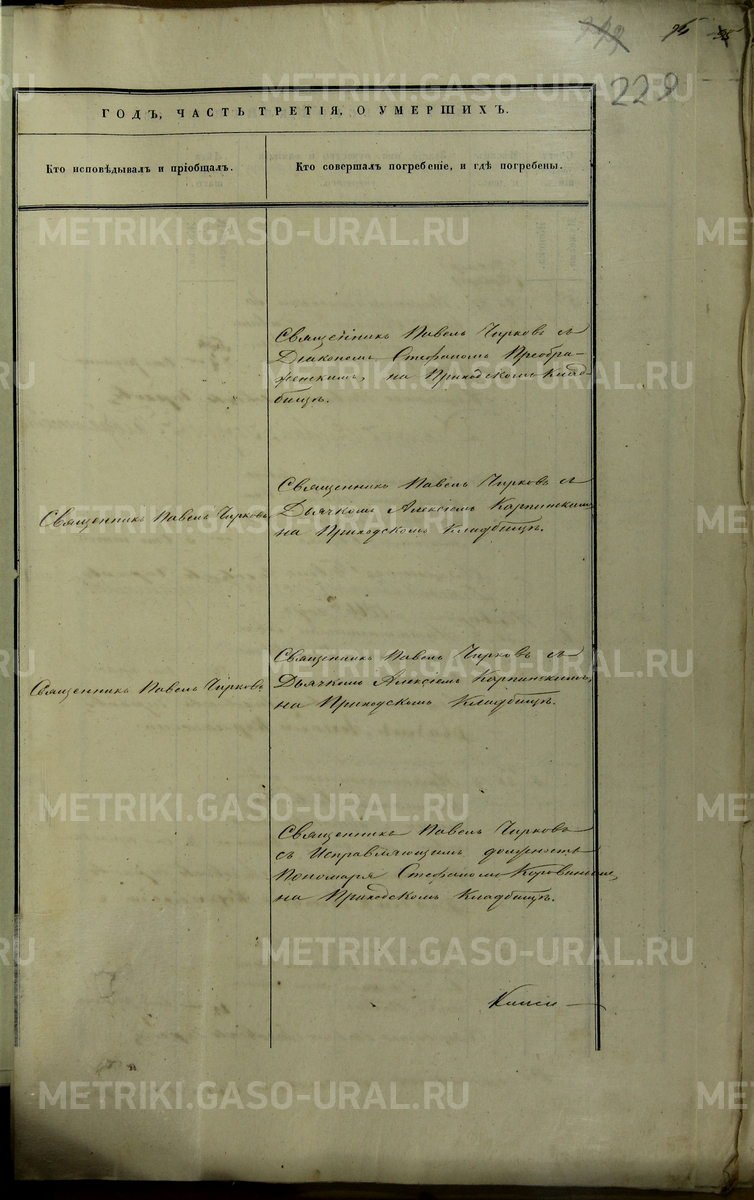 95
229
ГОДЪ, ЧАСТЬ ТРЕТІЯ, О УМЕРШИХЪ.
Кто исповѣдывалъ и пріобщалъ.
Кто совершалъ погребеніе, и гдѣ погребены.
Священникъ Павелъ Чирковъ съ
Діакономъ Стефаномъ Преобра-
женскимъ, на Приходскомъ Клад-
бищѣ.
Священникъ Павелъ Чирковъ
Священникъ Павелъ Чирковъ съ
Дьячкомъ Алексіемъ Карпинскимъ
на Приходскомъ Кладбищѣ.
Священникъ Павелъ Чирковъ
Священникъ Павелъ Чирковъ съ
Дьячкомъ Алексіемъ Карпинскимъ,
на Приходскомъ Кладбищѣ.
Священникъ Павелъ Чирковъ
съ Исправляющимъ должность
Пономаря Стефаномъ Коровинымъ,
на Приходскомъ Кладбищѣ.
METRIKI.GASO-URAL.RU